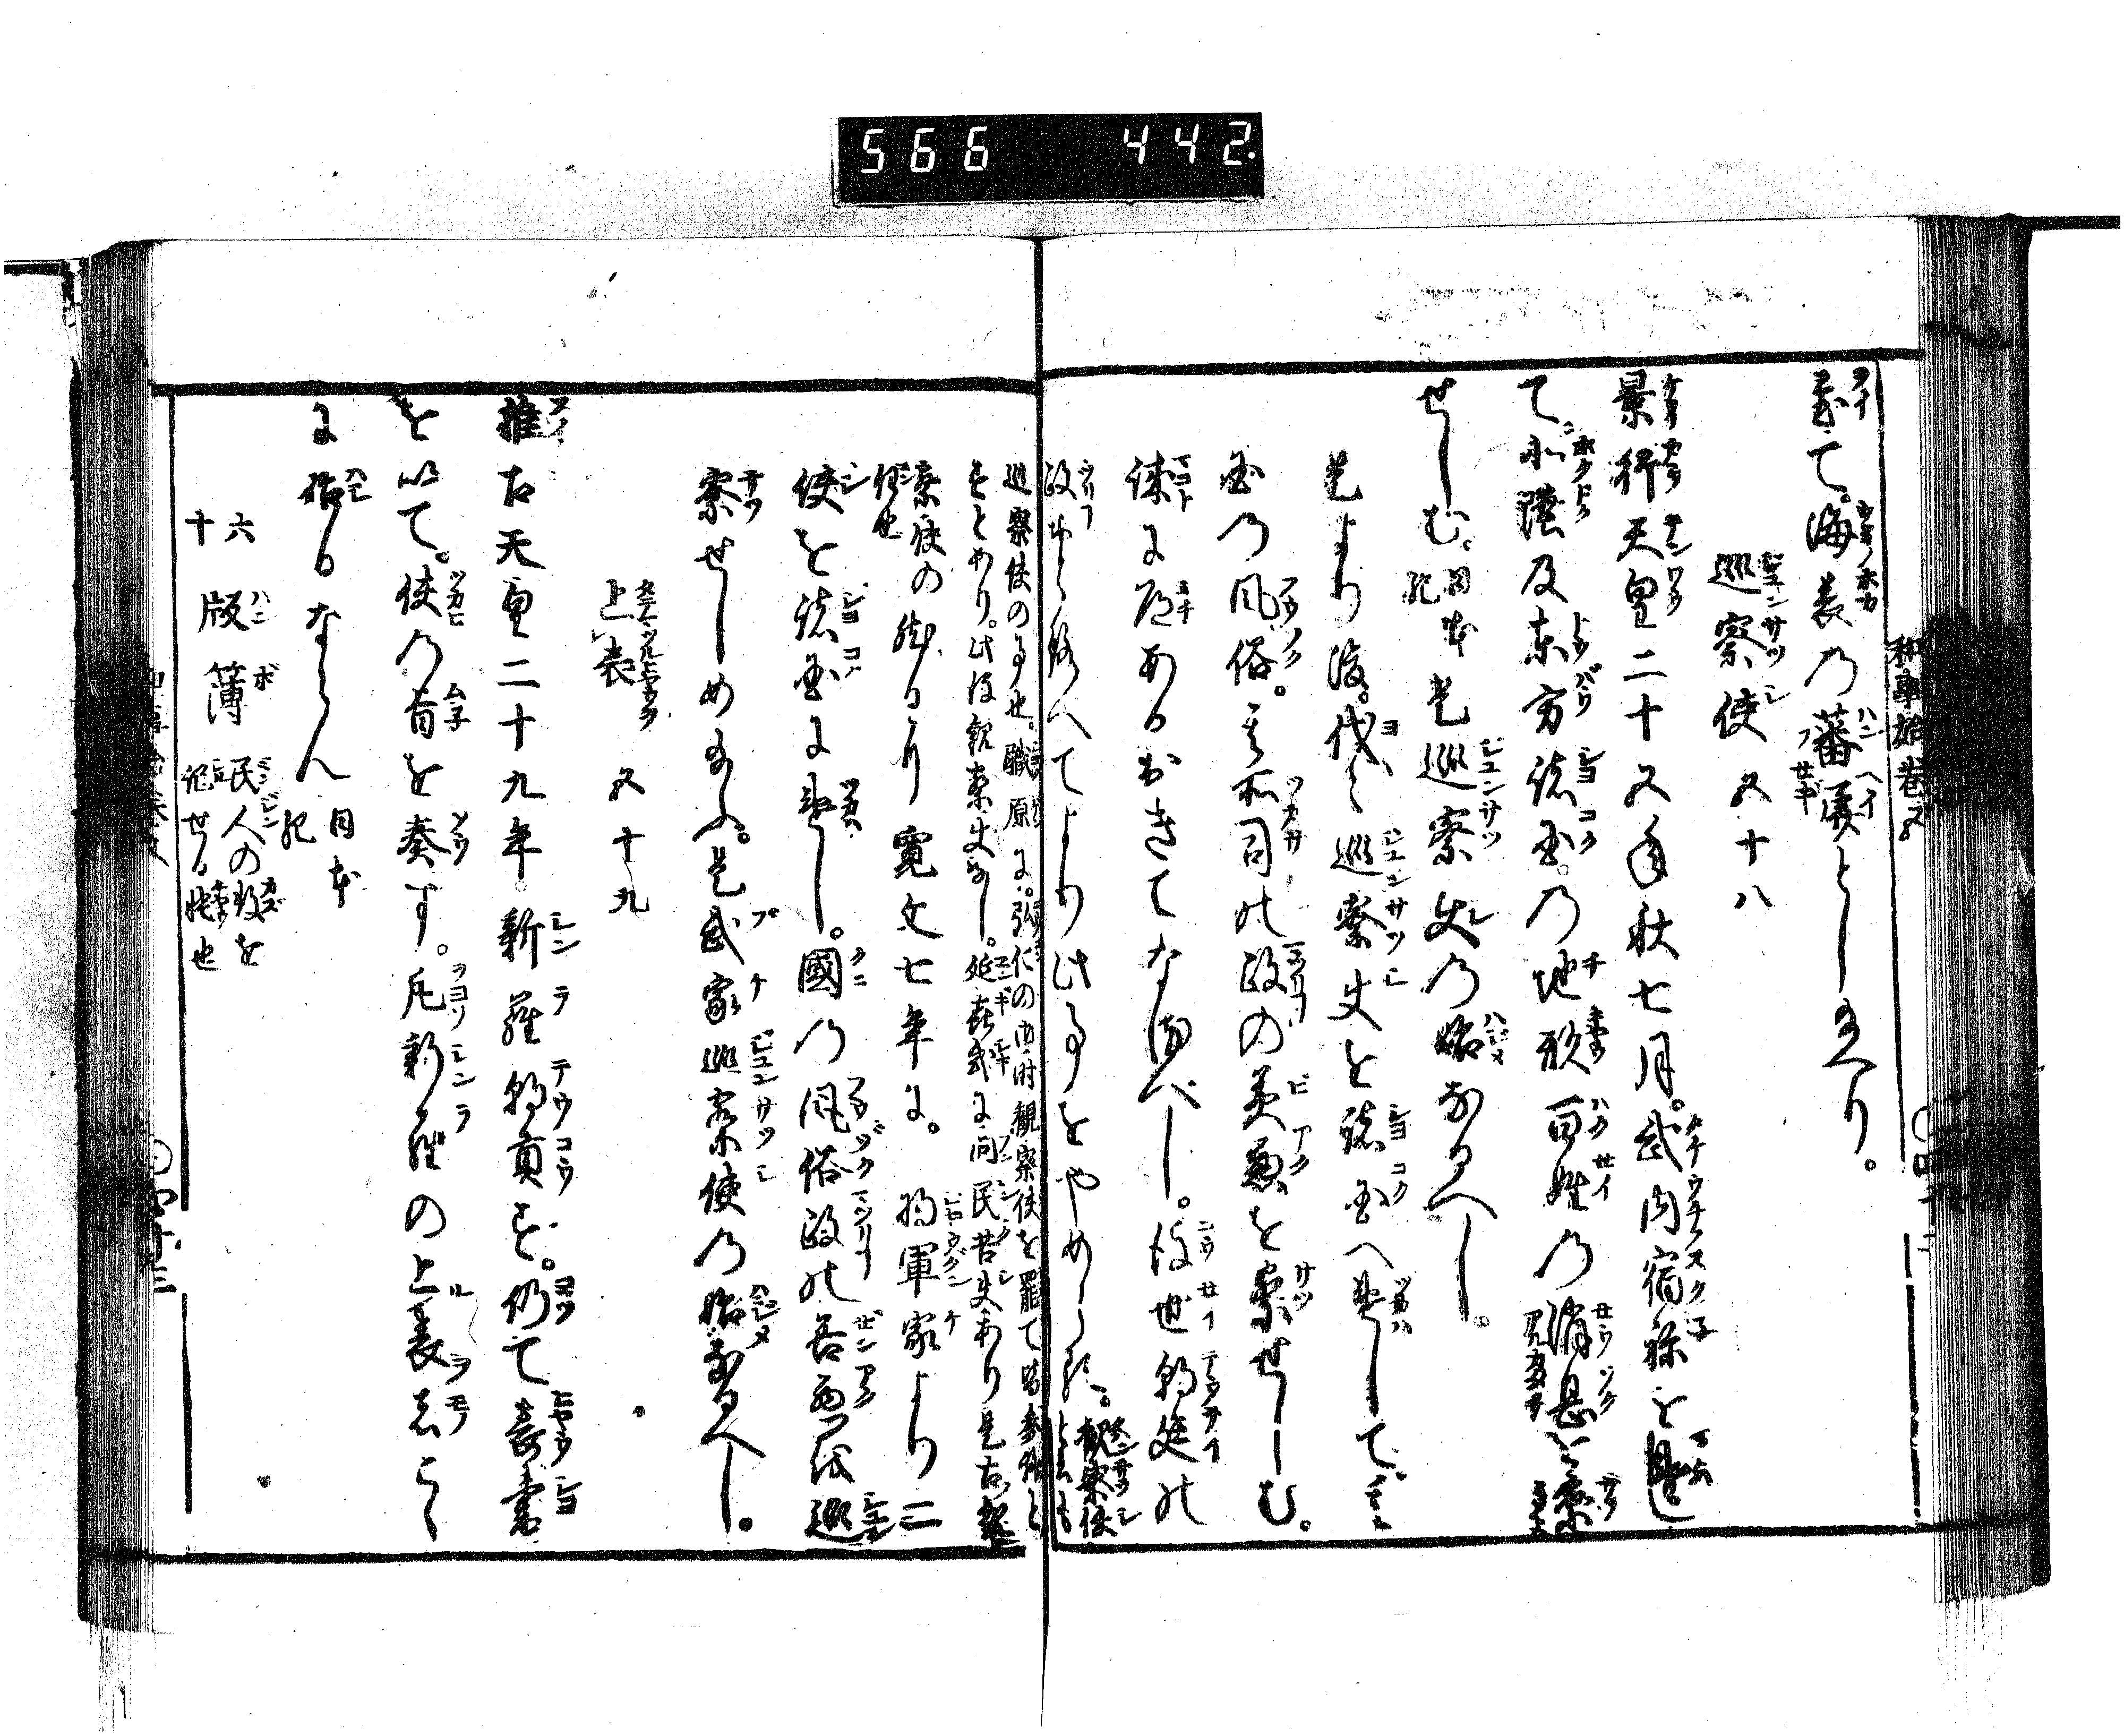 566 442
和事始巻五
て。海表の藩屏としたまへり。
巡察使 五十八
景行天皇二十五年秋七月。武内宿祢を遣し
て。北陸及東方諸国。の地形百姓の消息を察
せしむ。日本紀是巡察使の始なるへし。
是より後。代々巡察使を諸国へ遣して。其
国の風俗。其所司の政の美悪を察せしむ。
誠に道あるおきてなるべし。後世朝廷の
政おとろへてより此事をやめらる。観察使
巡察使の事也。職原に。弘仁の御時観察使を罷て
とあり。此後観察使なし。延喜式に問民苦使あり是古
察使の然るより寛文七年に。将軍家より二
使を諸国に遣し。國の風俗政の善悪を巡
察せしめ給ふ。是武家巡察使の始なるへし。
上表 五十九
推古天皇二十九年。新羅朝貢す。仍て表書
を以て。使の旨を奏す。凡新羅の上表はこゝ
に始るならん 日本紀
六十 版簿 民人の数を記せる帳也